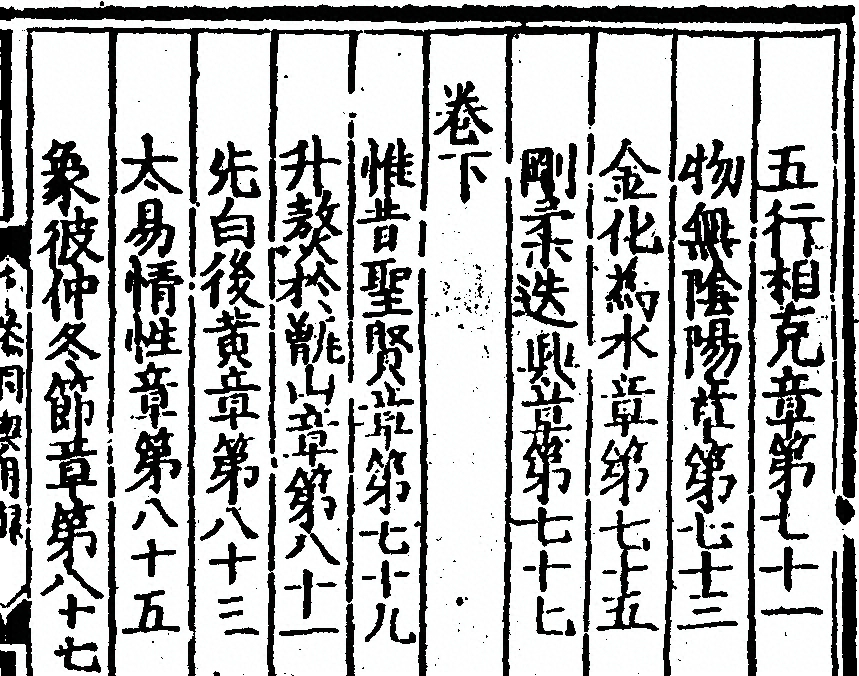 五行相克章第七十一
物無陰陽章第七十三
金化為水章第七十五
剛柔迭興章第七十七
卷下
惟昔聖賢章第七十九
升熬於甑山章第八十一
先白後黃章第八十三
太易情性章第八十五
象彼仲冬節章第八十七